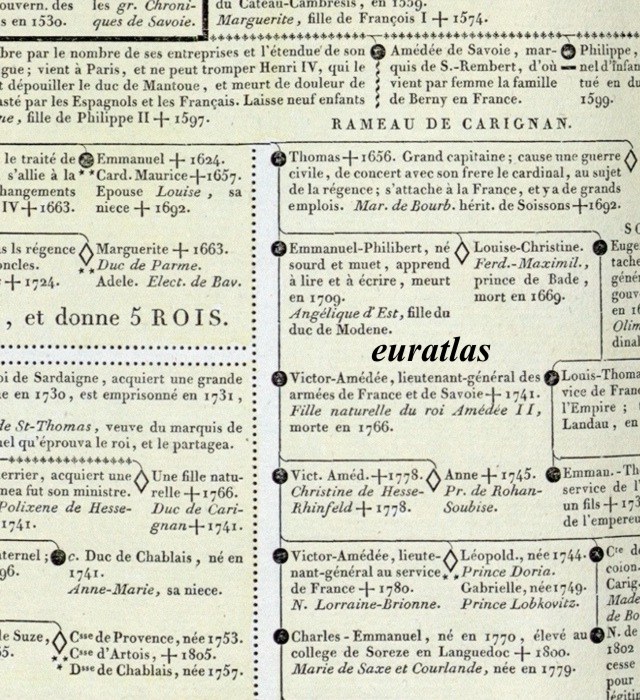 ouvern. des
s en 1530.
les gr. Chroni-
ques de Savoie.
du Cateau-Cambresis, en 1559.
Marguerite, fille de François I + 1574.
bre par le nombre de ses entreprises et l'étendue de son
gue; vient à Paris, et ne peut tromper Henri IV, qui le
t dépouiller le duc de Mantoue, et meurt de douleur de
asté par les Espagnols et les Français. Laisse neuf enfants
ne, fille de Philippe II + 1597.
Amédée de Savoie, mar-
quis de S.-Rembert, d'où
vient par femme la famille
de Berny en France.
Philippe,
nel d'Infan
tué en du
1599.
RAMEAU DE CARIGNAN.
le traité de
s'allie à la
hangements
IV + 1663.
Emmanuel + 1624.
Card. Maurice + 1657.
Epouse Louise, sa
niece + 1692.
Thomas + 1656. Grand capitaine; cause une guerre
civile, de concert avec son frere le cardinal, au sujet
de la régence; s'attache à la France, et y a de grands
emplois. Mar. de Bourb. hérit. de Soissons + 1692.
s ls régence
oncles.
+ 1724.
Marguerite + 1663.
Duc de Parme.
Adele. Elect. de Bav.
Emmanuel-Philibert, né
sourd et muet, apprend
à lire et à écrire, meurt
en 1709.
Angélique d'Est, fille du
duc de Modene.
Louise-Christine.
Ferd.-Maximil.,
prince de Bade,
mort en 1669.
SO
Euge
tache
génér
gouv
en 16
Olim
dinal
, et donne 5 ROIS.
euratlas
oi de Sardaigne, acquiert une grande
e en 1730, est emprisonné en 1731,
de St-Thomas, veuve du marquis de
nel qu'éprouva le roi, et le partagea.
Victor-Amédée, lieutenant-général des
armées de France et de Savoie + 1741.
Fille naturelle du roi Amédée II,
morte en 1766.
Louis-Thoma
vice de Franc
l'Empire;
Landau, en
errier, acquiert une
nea fut son ministre.
Polixene de Hesse-
1741.
Une fille natu-
relle + 1766.
Duc de Cari-
gnan + 1741.
Vict. Améd. + 1778.
Christine de Hesse-
Rhinfeld + 1778.
Anne + 1745.
Pr. de Rohan-
Soubise.
Emman.-Th
service de l'
un fils + 173
de l'empereu
ternel;
96.
c. Duc de Chablais, né en
1741.
Anne-Marie, sa niece.
Victor-Amédée, lieute-
nant-général au service
de France + 1780.
N. Lorraine-Brionne.
Léopold., née 1744.
Prince Doria.
Gabrielle, née 1749.
Prince Lobkovitz.
Cte de
coion.
Carig.
Made
de Bo
N. de
1802
cesse
pour
légitim
de Suze,
55.
Csse de Provence, née 1753.
Csse d'Artois, + 1805.
Dsse de Chablais, née 1757.
Charles-Emmanuel, né en 1770, élevé au
college de Soreze en Languedoc + 1800.
Marie de Saxe et Courlande, née en 1779.